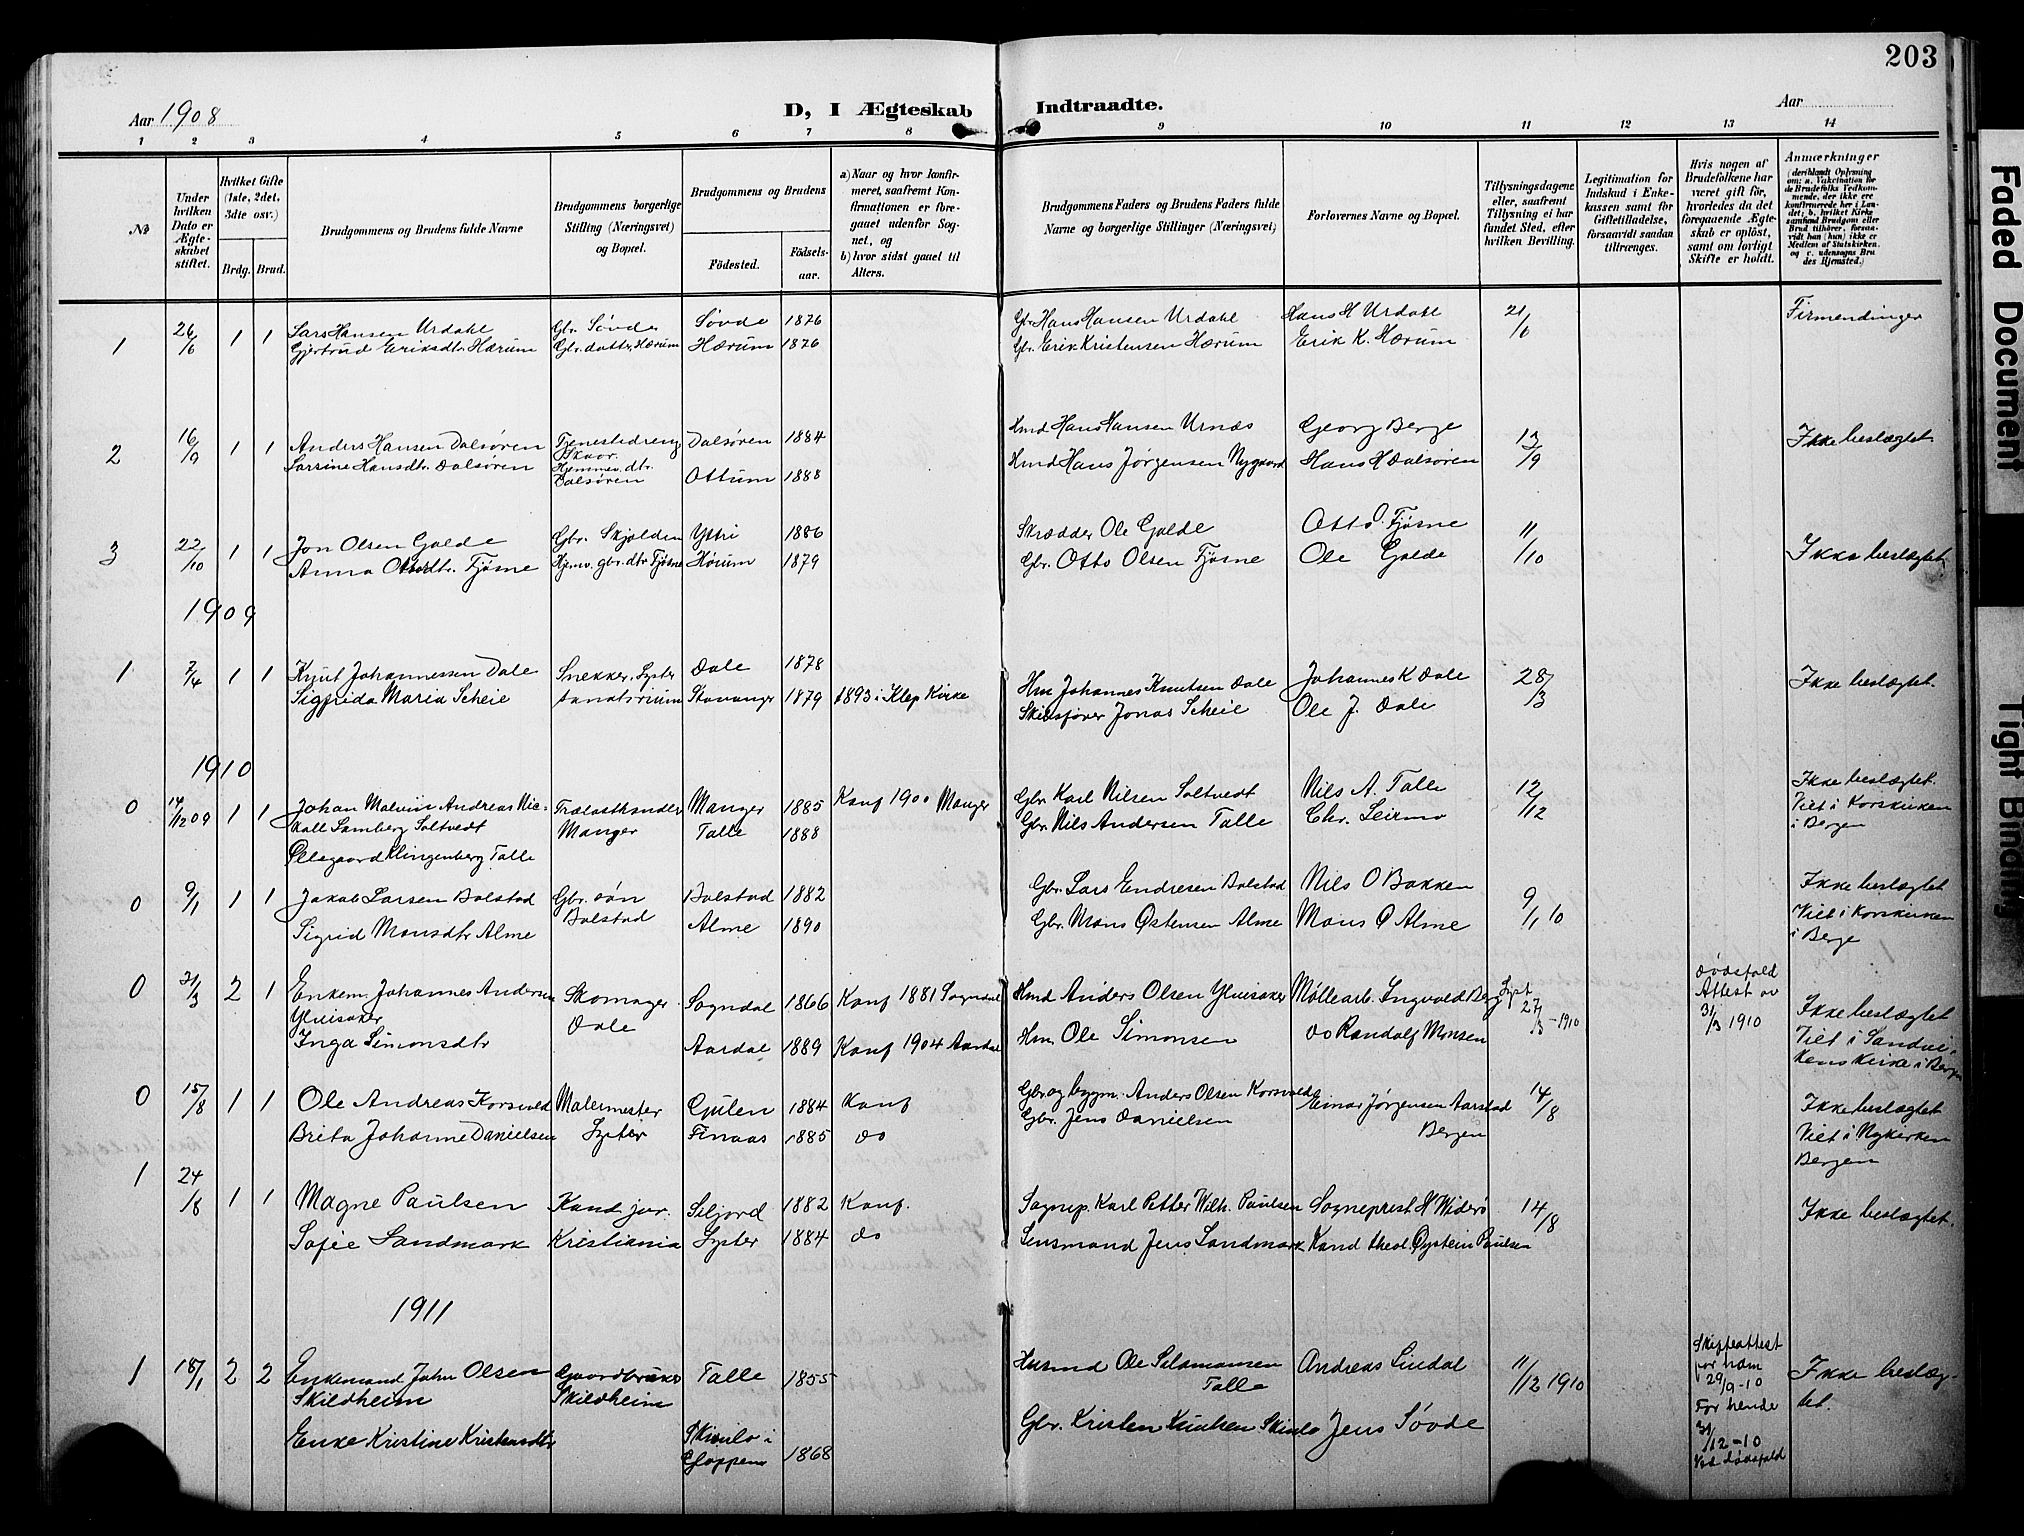 203
Aar 1908
D, I Ægteskab Indtraadte.
Aar
1 2 3 4 5 6 7 8 9 10 11 12 13 14
№
Under hvilken Dato er Ægteskabet stiftet.
Hvilket Gifte (1ste, 2det, 3dte osv.)
Brdg. Brud.
Brudgommens og Brudens fulde Navne
Brudgommens borgerlige Stilling (Næringsvei) og Bopæl.
Brudgommens og Brudens
Födested.
Födselsaar.
a) Naar og hvor konfirmeret, saafremt Konfirmationen er foregaaet udenfor Sognet, og
b) hvor sidst gaaet til Alters.
Brudgommens Faders og Brudens Faders fulde Navne og borgerlige Stillinger (Næringsvei)
Forlovernes Navne og Bopæl.
Tillysningsdagene eller, saafremt Tillysning ei har fundet Sted, efter hvilken Bevilling.
Legitimation for Indskud i Enkekassen samt for Giftetilladelse, forsaavidt saadan tiltrænges.
Hvis nogen af Brudefolkene har været gift för, hvorledes da det foregaaende Ægteskab er oplöst, samt om lovligt Skifte er holdt.
Anmærkninger (deriblandt Oplysning om: a. Vakcination for de Brudefolks Vedkommende, der ikke ere konfirmerede her i Landet; b. hvilket Kirkesamfund Brudgom eller Brud tilhörer, forsaavidt han (hun) ikke er Medlem af Statskirken, og c. udensogns Brudes Hjemsted.)
1 26/6 1 1 Lars Hansen Urdahl Gbr. Søvde Søvde 1876 Gbr Hans Hansen Urdahl Hans H Urdahl 21/6 Firmendinger
Gjertrud Eriksdtr. Hærum Gbr. datter, Hærum Hærum 1876 Gbr. Erik Kristensen Hærum Erik K. Hærum
2 16/9 1 1 Anders Hansen Dalsøren Tjenestedreng Skaar. Dalsøren 1884 Hmd Hans Hansen Urnæs Georg Berge 13/9 Ikke beslægtet
Larsine Hansdtr. Dalsøren Hjemmev. dtr. Dalsøren Ottum 1888 Hmd Hans Jørgensen Nygaard Hans H Dalsøren
3 22/10 1 1 Jon Olsen Galde Gbr. Skjolden Yttri 1886 Skrædder Ole Galde Otto O. Fjøsne 11/10 Ikke beslægtet
Anna Ottosdtr. Fjøsne Hjemv. gbr. dtr Fjøsne Hørum 1879 Gbr. Otto Olsen Fjøsne Ole Galde
1909
1 7/4 1 1 Knut Johannessen Dale Snekker, Lyster Dale 1878 Hm Johannes Knutsen Dale Johannes K Dale 28/3 Ikke beslægtet.
Sigfrida Maria Scheie sanatorium Stavanger 1879 1893 i Klep Kirke Skibsfører Jonas Scheie Ole J. Dale
1910
0 14/12 09 1 1 Johan Malvin Andreas Nic- Trælasthandler Manger 1885 Konf 1900 Manger Gbr. Karl Nilsen Soltvedt Nils A. Talle 12/12 Ikke beslægtet.
Soltvedt Manger Talle 1888 Gbr. Nils Andersen Talle Chr. Leirmo Viet i Korskirken
Klingenberg Talle i Bergen
0 9/1 1 1 Jakob Larsen Bolstad Gbr. søn Bolstad 1882 Gbr. Lars Endresen Bolstad Nils O Bakken 9/1 10 Ikke beslægtet
Sigrid Monsdtr Alme Bolstad Alme 1890 Gbr. Mons Østensen Alme Mons Ø Alme Viet i Korskirken
i Berge
0 31/3 2 1 Enkem. Johannes Andersen Skomager Sogndal 1866 Konf 1881 Sogndal Hmd Anders Olsen Ylvisaker Møllearb. Ingvald Berg Lyst 27/3-1910 dødsfald Attest av 31/3 1910 Ikke beslægtet
Ylvisaker Dale
Inga Simonsdtr Aardal 1889 Konf 1904 Aardal Hm. Ole Simonsen do Randolf Monsen Viet i Sandvi-
kens kirke i Bergen
0 15/8 1 1 Ole Andreas Korsvold Malermester Gulen 1884 Konf Gbr. og bygm. Anders Olsen Korsvold Einar Jørgensen Aarstad 14/8 Ikke beslægtet
Brita Johanne Danielsen Lyster Finaas 1885 do Gbr. Jens Danielsen Bergen Viet i Nykirken
Bergen
1 24/8 1 1 Magne Paulsen Kand jur. Seljord 1882 Konf. Sognep. Karl Petter Wilh. Paulsen Sogneprest N Widerø 14/8 Ikke beslægtet.
Sofie Landmark Kristiania Lyster 1884 do Lensmand Jens Landmark Kand theol. Øystein Paulsen
1911
1 18/1 2 2 Enkemand John Olsen Gaardbruker Talle 1855 Husmd Ole Salamonsen Andreas Lindal 11/12 1910 Skifteattest for ham 29/9-10 Ikke beslæg-
Skildheim Skildheim Talle For hende 31/12-10 Ved dødsfald tet.
Enke Kristine Kristensdtr i Gloppen 1868 Gbr. Kristen Jens Søvde
Faded Document
Tight Binding